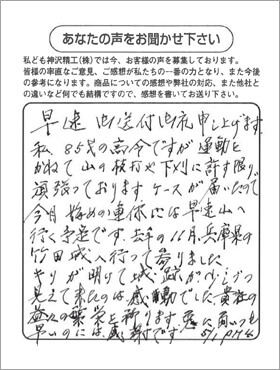 あなたの声をお聞かせ下さい
私ども神沢精工(株)では今、お客様の声を募集しております。
皆様の率直なご意見、ご感想が私たちの一番の力となり、また今後
の参考になります。商品についての感想や弊社の対応、また他社と
の違いなど何でも結構ですので、感想を書いてお送り下さい。
早速 御送付御礼申し上げます
私、85才の高令ですが運動と
かねて 山の枝打や下刈に許す限り
頑張っております ケースが届いたので
今月 始めの連休には早速山へ
行く予定です 去年の11月、兵庫県の
竹田城へ行って参りました
きりが明けて城跡が
見えて来たのは感動でした 貴社の
益々の繁栄を祈ります
早いのには感謝です